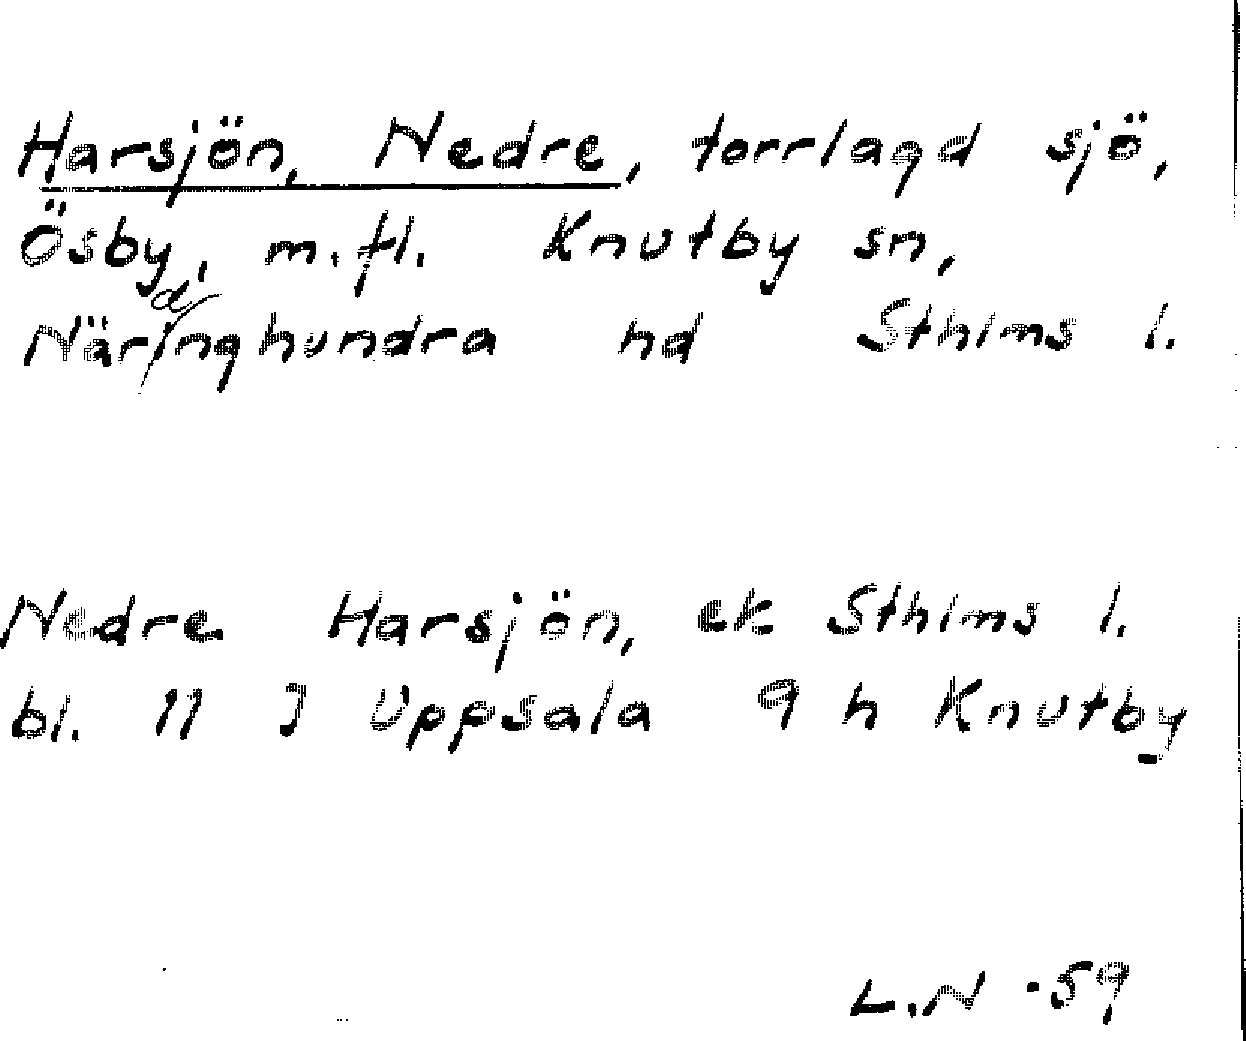 Harsjön, Nedre, torrlagd sjö,
Ösby, m.fl. Knutby sn,
Närdinghundra hd Sthlms l.
Nedre Harsjön, ek Sthlms l.
bl. 11 J Uppsala 9 h Knutby
L.N -59